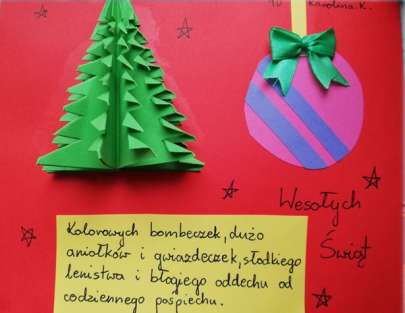 Karolina K.
Wesołych
Świąt
Kolorowych bombeczek, dużo
aniołków i gwiazdeczek, słodkiego
lenistwa i błogiego oddechu od
codziennego pośpiechu.